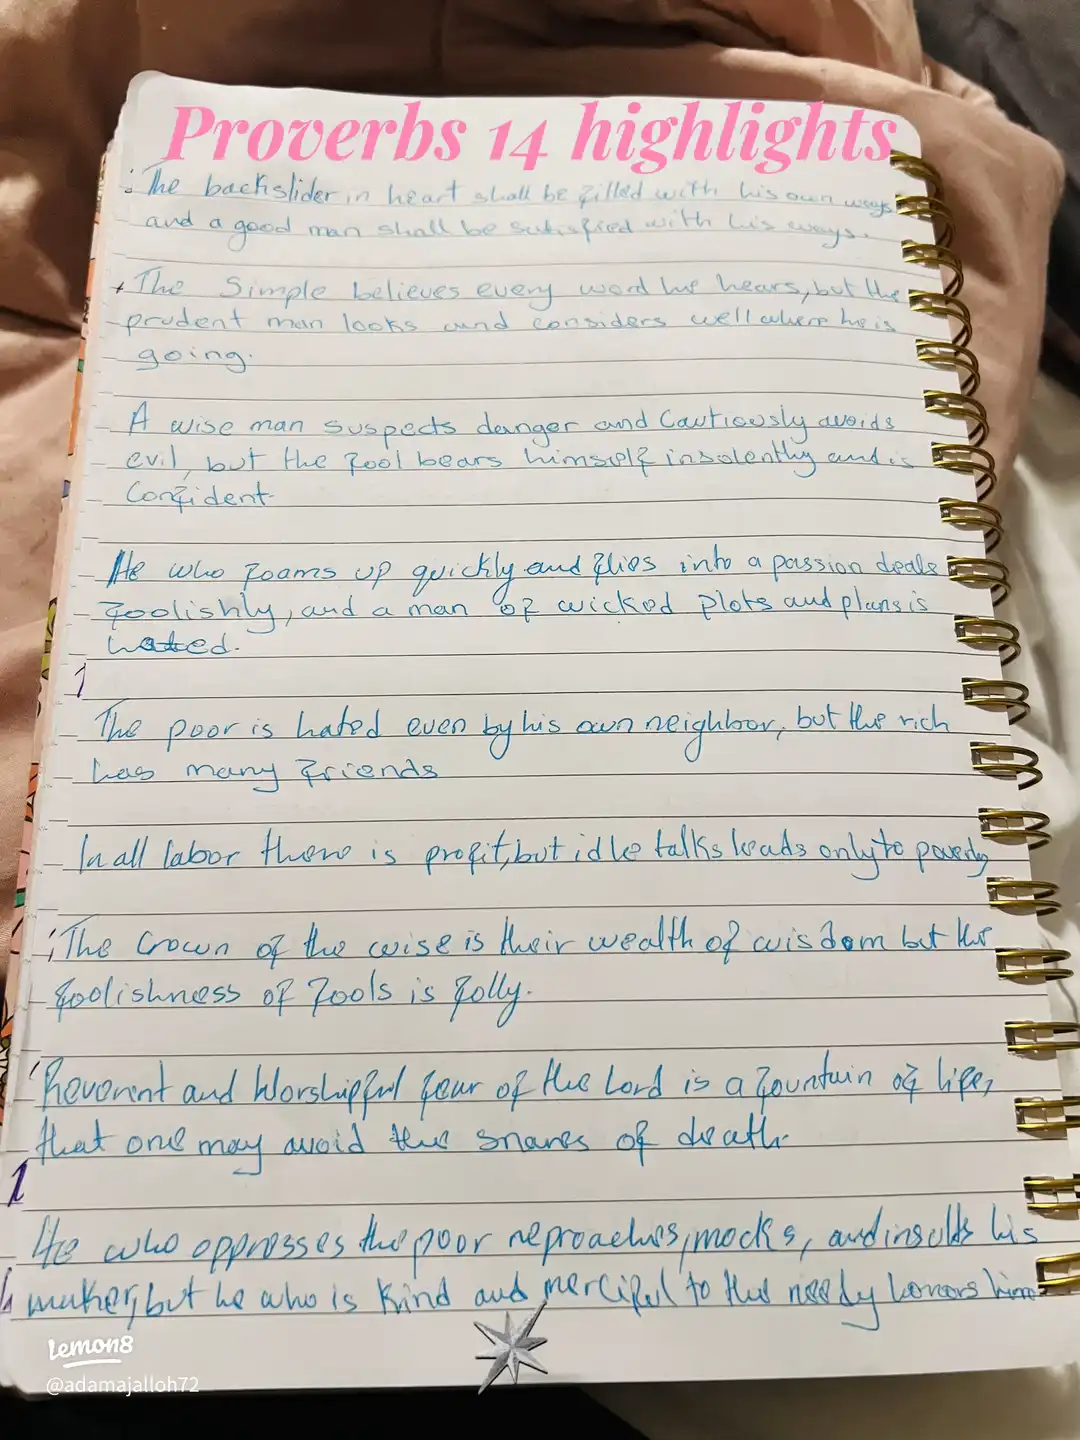 Proverbs 14 highlights
The backslider in heart shall be filled with his own ways
and a good man shall be satisfied with his ways.
The Simple believes every word he hears, but the
prudent man looks and considers well where he is
going.
A wise man suspects danger and Cautiously avoids
evil, but the fool bears himself insolently and is
Confident
He who foams up quickly and flies into a passion deals
foolishly, and a man of wicked plots and plans is
hated.
1
The poor is hated even by his own neighbor, but the rich
has many friends
In all labor there is profit, but idle talks leads only to poverty
The Crown of the wise is their wealth of wisdom but the
foolishness of fools is folly.
Reverent and Worshipful fear of the Lord is a fountain of life,
that one may avoid the snares of death.
1
He who oppresses the poor reproaches, mocks, and insults his
maker, but he who is kind and merciful to the needy honors him.
lemon8
@adamajalloh72